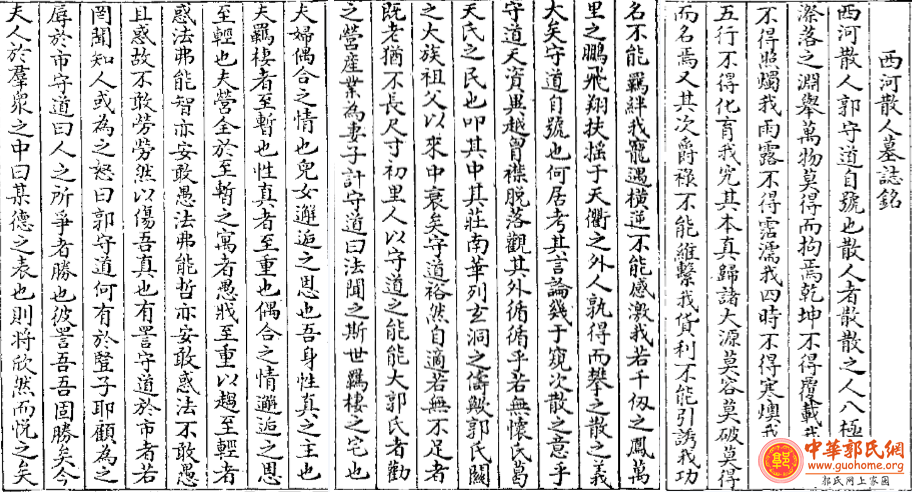 西河散人墓誌銘
西河散人郭守道自號也散人者散散之人八極
滌落之淵舉萬物莫得而拘焉乾坤不得覆載我
不得照燭我雨露不得霑濡我四時不得寒燠我
五行不得化育我究其本真歸諸大源莫容莫破莫得
而名焉又其次爵祿不能維繫我貨利不能引誘我功
名不能羈絆我寵遇橫逆不能感激我若千仭之鳳萬
里之鵬飛翔扶搖于天衢之外人孰得而攀之散之義
大矣守道自號也何居考其言論幾于窺次散之意乎
守道天資異越胷襟脫落觀其外循循乎若無懷氏葛
天氏之民也叩其中其莊南華列玄洞之儔歟郭氏闕
之大族祖父以來中衰矣守道裕然自適若無不足者
既老猶不長尺寸初里人以守道之能能大郭氏者勸
之營産業為妻子計守道曰法聞之斯世羈棲之宅也
夫婦偶合之情也兒女邂逅之恩也吾身性真之主也
夫羈棲者至暫也性真者至重也偶合之情邂逅之恩
至輕也夫營全於至暫之寓者愚戕至重以趨至輕者
惑法弗能智亦安敢愚法弗能哲亦安敢惑法不敢愚
且惑故不敢勞勞然以傷吾真也有詈守道於市者若
罔聞知人或為之怒曰郭守道何有於豎子耶顧為之
辱於市守道曰人之所爭者勝也彼詈吾吾固勝矣今
夫人於羣衆之中曰某德之表也則將欣然而悅之矣
中華郭氏網
www.guohome.org
郭氏网上家园